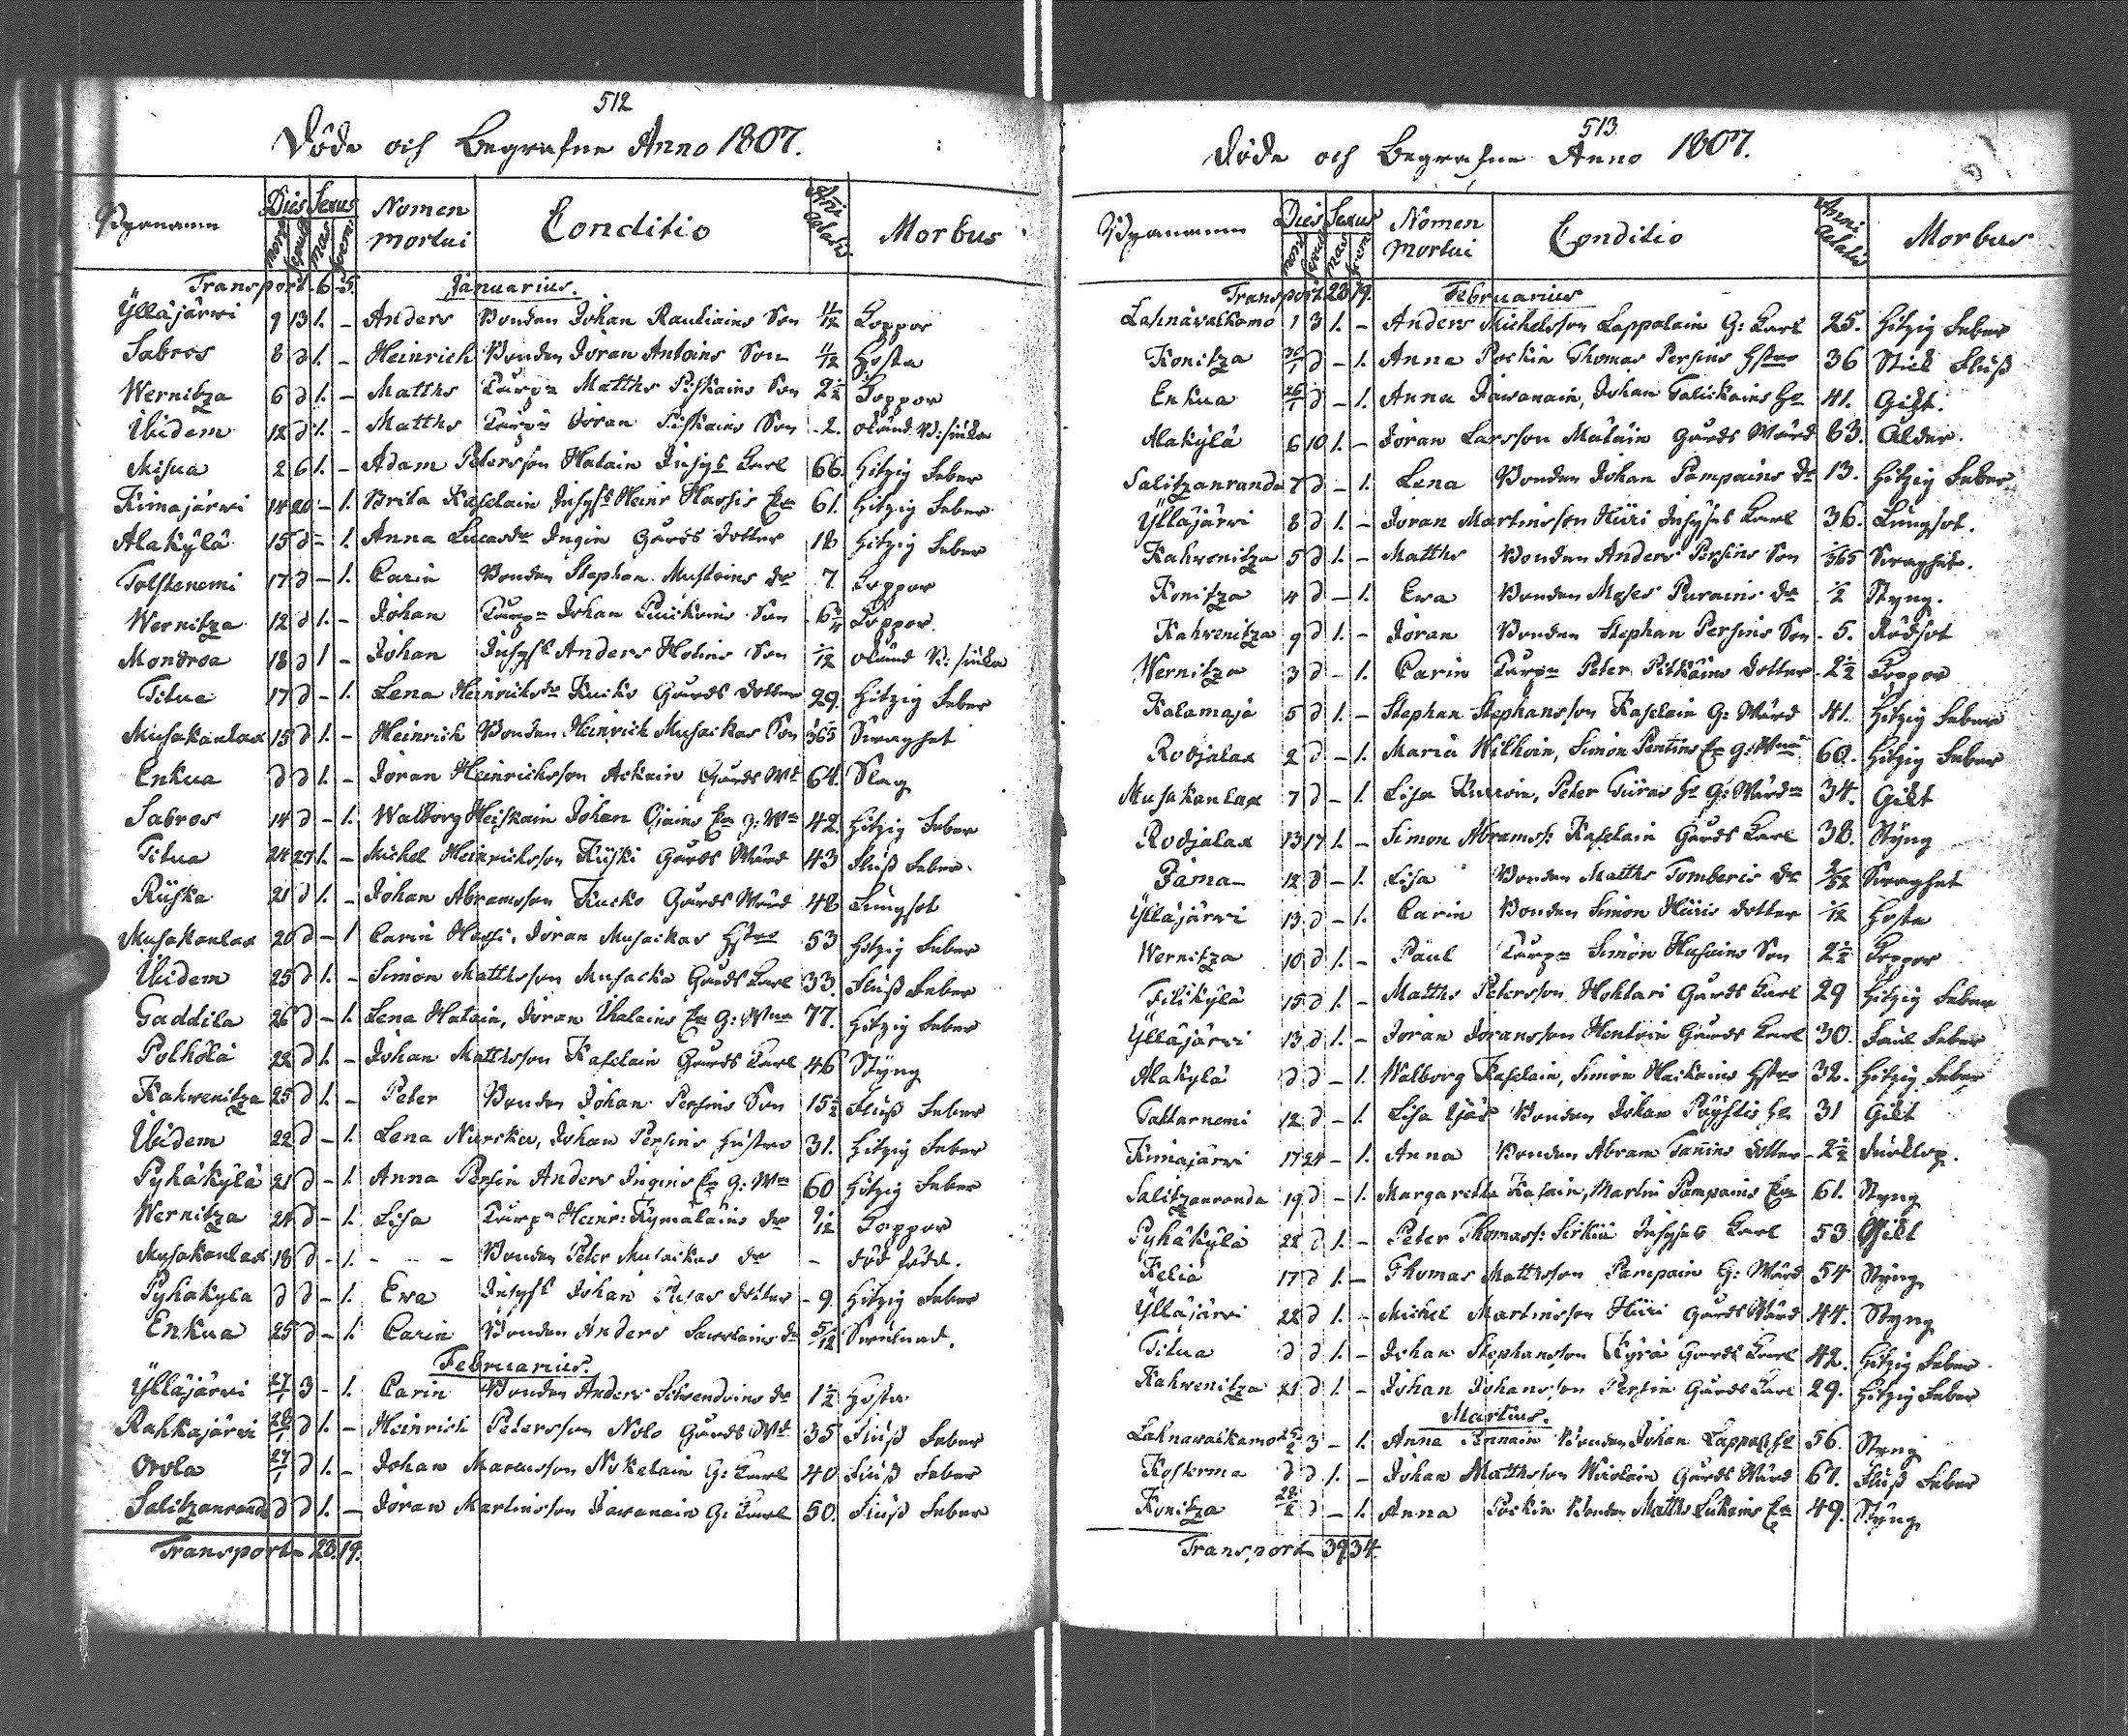 512
Döde och Begrafne Anno 1807.
Bynamn Dies Sexus Nomen mortui Conditio Anni aetatis Morbus
mort sepult mas foem
Transport 6 5. Januarius.
Ylläjärwi 9 13 1. – Anders Bonden Johan Rautiains Son 11/12 Koppor
Sabros 8 d 1. – Heinrich Bonden Jöran Antoins Son 11/12 Hosta
Wernitza 6 d 1. – Matths Torpn Matths Pitkains Son 2½ Koppor
Ibidem 12 d 1. – Matths Torpn Jöran Pitkains Son 2. okänd B: siuka
Misua 2 6 1. – Adam Petersson Hatain Inhys Karl 66. Hitzig Feber
Kimajärwi 14 20 – 1. Brita Kaselain Inhys Heinr Hassis Ea 61. Hitzig Feber
Alakylä 15 d – 1. Anna Lucasdr Ingin Gårds dotter 18 Hitzig Feber
Tolstenemi 17 d – 1. Carin Bonden Stephan Mustoins dr 7. Koppor
Wernitza 12 d 1. – Johan Torpn Johan Son Koppor.
Mondroa 18 d 1 – Johan Inhys Anders Holins Son 1/12 okänd B: siuka
Titua 17 d – 1. Lena Heinrichsdr Kucko Gårds dotter 29. Hitzig Feber
Musakanlax 15 d 1. – Heinrich Bonden Heinrich Musackas Son 1/365 Swaghet
Enkua d d 1. – Jöran Heinrichsson Ackain Gårds Wd 64. Slag
Sabros 14 d – 1. Walborg Heiskain Johan Ea g: Wa 42. Hitzig Feber
Titua 24 27 1. – Michel Heinrichsson Kyski Gårds Wärd 43 Fluß Feber.
Ryska 21 d 1. – Johan Abramsson Kucko Gårds Wärd 48 Lungsot
Musakanlax 20 d – 1 Carin Hassi, Jöran Musackas Hstro 53 Hitzig Feber
Ibidem 25 d 1. – Simon Matthsson Musacka Gårds Karl 33. Fluß Feber
Gaddila 26 d – 1. Lena Hatain, Jöran Ihalains Ea G: Wna 77. Hitzig Feber
Polhola 22 d 1. – Johan Matthsson Kaselain Gårds Karl 46 Styng
Kahwenitza 25 d 1. – Peter Bonden Johan Persins Son 15½ Fluß Feber
Ibidem 22 d – 1. Lena Nurska, Johan Persins Hustro 31. Hitzig Feber
Pyhäkylä 21 d – 1. Anna Persin Anders Ingins Ea g: Wa 60 Hitzig Feber
Wernitza 24 d – 1. Lisa Torpn Heinr: Kymäläins dr 9/12 Koppor
Musakanlax 18 d – 1. – – – Bonden Peter Musackas dr – död född.
Pyhäkylä d d – 1. Ewa Inhys Johan Pusas dotter 9. Hitzig Feber
Enkua 25 d – 1. Carin Bonden Anders dr 5/12 Swullnad.
Februarius.
Ylläjärwi 27/1 3 – 1. Carin Bonden Anders dr 1½ Hosta
Rahkajärwi 28/1 d 1. – Heinrich Petersson Nolo Gårds Wd 35 Fluß Feber
Orola 27/1 d 1. – Johan Marcusson Nykelain G: Karl 40 Fluß Feber
Salitzanranda d d 1. – Jöran Martinsson Jäwanain G: Karl 50. Fluß Feber
Transport 23. 19.
513
Döde och Begrafne Anno 1807.
Bynamn Dies Sexus Nomen mortui Conditio Anni aetatis Morbus
mort sepult mas foem
Transport 23 19. Februarius
Lahnawaikamo 1 3 1. – Anders Michelsson Lappalain G: Karl 25. Hitzig Feber
Konitza 30/1 d – 1. Anna Pockin Thomas Persins Hstro 36 Stick Fluß
Enkua 26/1 d – 1. Anna Jäwanain, Johan Talickains Ha 41. Gikt.
Alakylä 6 10 1. – Jöran Larsson Mätäin Gårds Wärd 63. Ålder.
Salitzanranda 7 d – 1. Lena Bonden Johan Pampains dr 13. Hitzig Feber
Ylläjärwi 8 d 1. – Jöran Martinsson Hiiri Inhyses Karl 36. Lungsot.
Kahwenitza 5 d 1. – Matths Bonden Anders Persins Son 1/365 Swaghet.
Konitza 4 d – 1. Ewa Bonden Moses Purains dr ½ Styng.
Kahwenitza 9 d 1. – Jöran Bonden Stephan Persins Son 5. Rödsot
Wernitza 3 d – 1. Carin Torpn Peter Pitkäins dotter 2½ Koppor
Kalamaja 5 d 1. – Stephan Stephansson Kaselain G: Wärd 41. Hitzig Feber
Rodjalax 2 d – 1. Maria Wilhoin, Simon Pentins Ea g: Wna 60. Hitzig Feber
Musakanlax 7 d – 1. Lisa Kurwin, Peter Tiiras Ha G: Wärda 34. Gikt
Rodjalax 13 17 1. – Simon Abramss: Kaselain Gårds Karl 38. Styng
Jama 12 d – 1. Lisa Bonden Matths Tomberis dr 2/52 Swaghet
Ylläjärwi 13 d – 1. Carin Bonden Simon Hiiris dotter 1/12 Hosta
Wernitza 10 d 1. – Paul Torpn Simon Husains Son 2½ Koppor
Tilikylä 15 d 1. – Matths Petersson Hohtari Gårds Karl 29 Hitzig Feber
Ylläjärwi 13 d 1. – Jöran Jöransson Hentoin Gårds Karl 30. Faul Feber
Alakylä d d – 1. Walborg Kaselain, Simon Haikains Hstro 32. Hitzig Feber
Tattarnemi 12 d – 1. Lisa Bonden Johan Pöystis Ha 31 Gikt
Kimajärwi 17 24 – 1. Anna Bonden Abram Tanins dotter 2½ Durklop.
Salitzanranda 19 d – 1. Margaretha Kasain, Martin Pampains Ea 61. Styng
Pyhäkylä 22 d 1. – Peter Thomass: Sirkiä Inhyses Karl 53 Gikt
Keliä 17 d 1. – Thomas Matthsson Pampain G: Wärd 54 Styng
Ylläjärwi 22 d 1. – Michel Martinsson Hiiri Gårds Wärd 44. Styng
Titua d d 1. – Johan Stephansson Kyrä Gårds Karl 42. Hitzig Feber
Kahwenitza 21 d 1. – Johan Johansson Persin Gårds Karl 29. Hitzig Feber
Martius.
Lahnawaikamo 25/2 3 – 1. Anna Bonden Johan 56. Styng
Kosterma d d 1. – Johan Matthsson Gårds Wärd 67. Fluß Feber
Konitza 28/2 d – 1. Anna Pockin Bonden Matths Lukoins Ea 49. Styng
Transport 39 34.